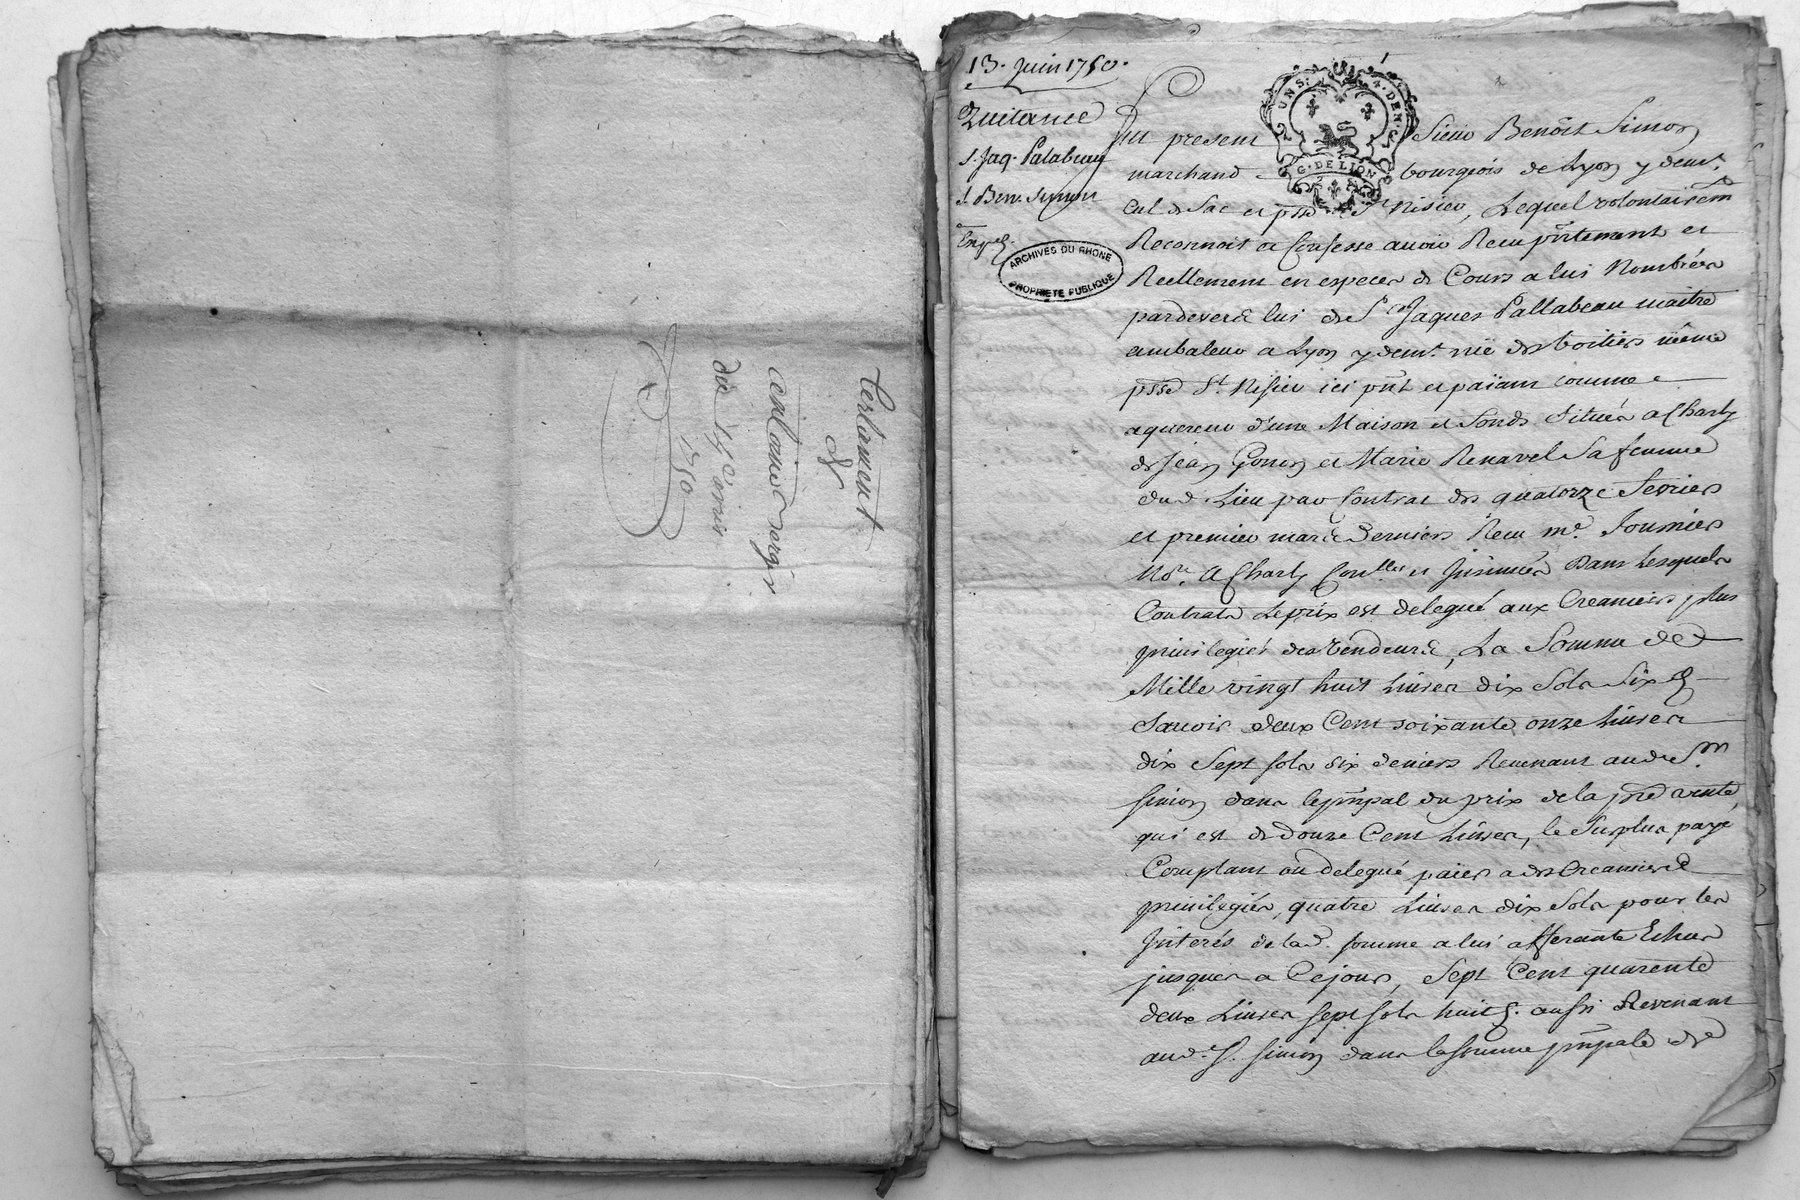 Testament
&
antoine
du 15e
1750
13. Juin 1750.
Quitance
s. Jaq. Palabeau
s. Ben. Simon
ARCHIVES DU RHONE
PROPRIETE PUBLIQUE
G. DE LION
Fut present Sieur Benoit Simon
marchand bourgeois de Lyon y demt.
cul de sac et psse St Nisier, Lequel volontairemt
Reconnoit et Confesse avoir Recu pntement et
Reellement en especes de Cours a lui Nombrées
pardevers lui de Sr Jaques Pallabeau maitre
ambaleur a Lyon y demt. rüe des boitiers même
psse St. Nisier ici pnt et païant comme
aquereur d'une Maison et fonds Situés a Charly
de Jean Gonon et Marie Renavel Sa femme
dud. Lieu par Contrat des quatorze Fevrier
et premier mars derniers Recu me. Fournier
Nore. a Charly Conllés et Jnsinués Dans Lesquels
Contrats Le prix est delegué aux Creanciers plus
privilegiés des Vendeurs, La Somme de
Mille vingt huit Livres dix Sols Six d
Savoir deux Cent soixante onze Livres
dix Sept sols six deniers Revenant aud. Sr.
Simon dans le pnpal du prix de la pnte vente,
qui est de douze Cent Livres, le Surplus payé
Comptant ou delegué païer a des Creanciers
privilegiés, quatre Livres dix Sols pour les
Jnterés de lad. somme a lui afferante Echus
jusques a Cejour, Sept Cent quarente
deux Livres sept sols huit d. aussi Revenant
aud. Sr. Simon dans la somme pnpale de